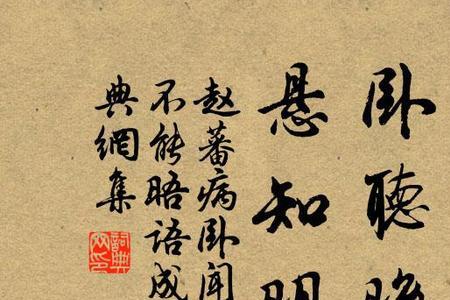 卧聽
悬知明
赵蕃病卧闻
不能晤语成
典網集